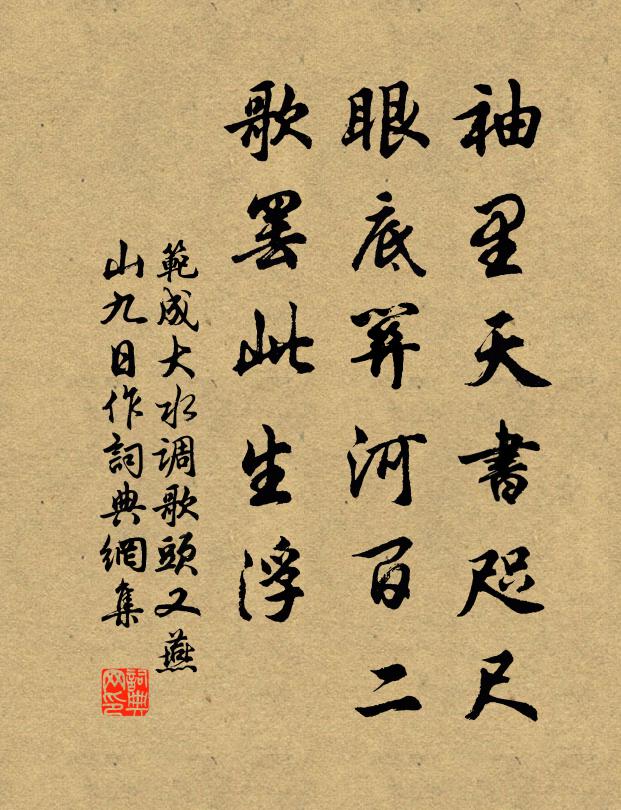 袖里天書咫尺
眼底關河百二
歌罢此生浮
範成大水调歌頭又燕
山九日作詞典網集
詞典网印